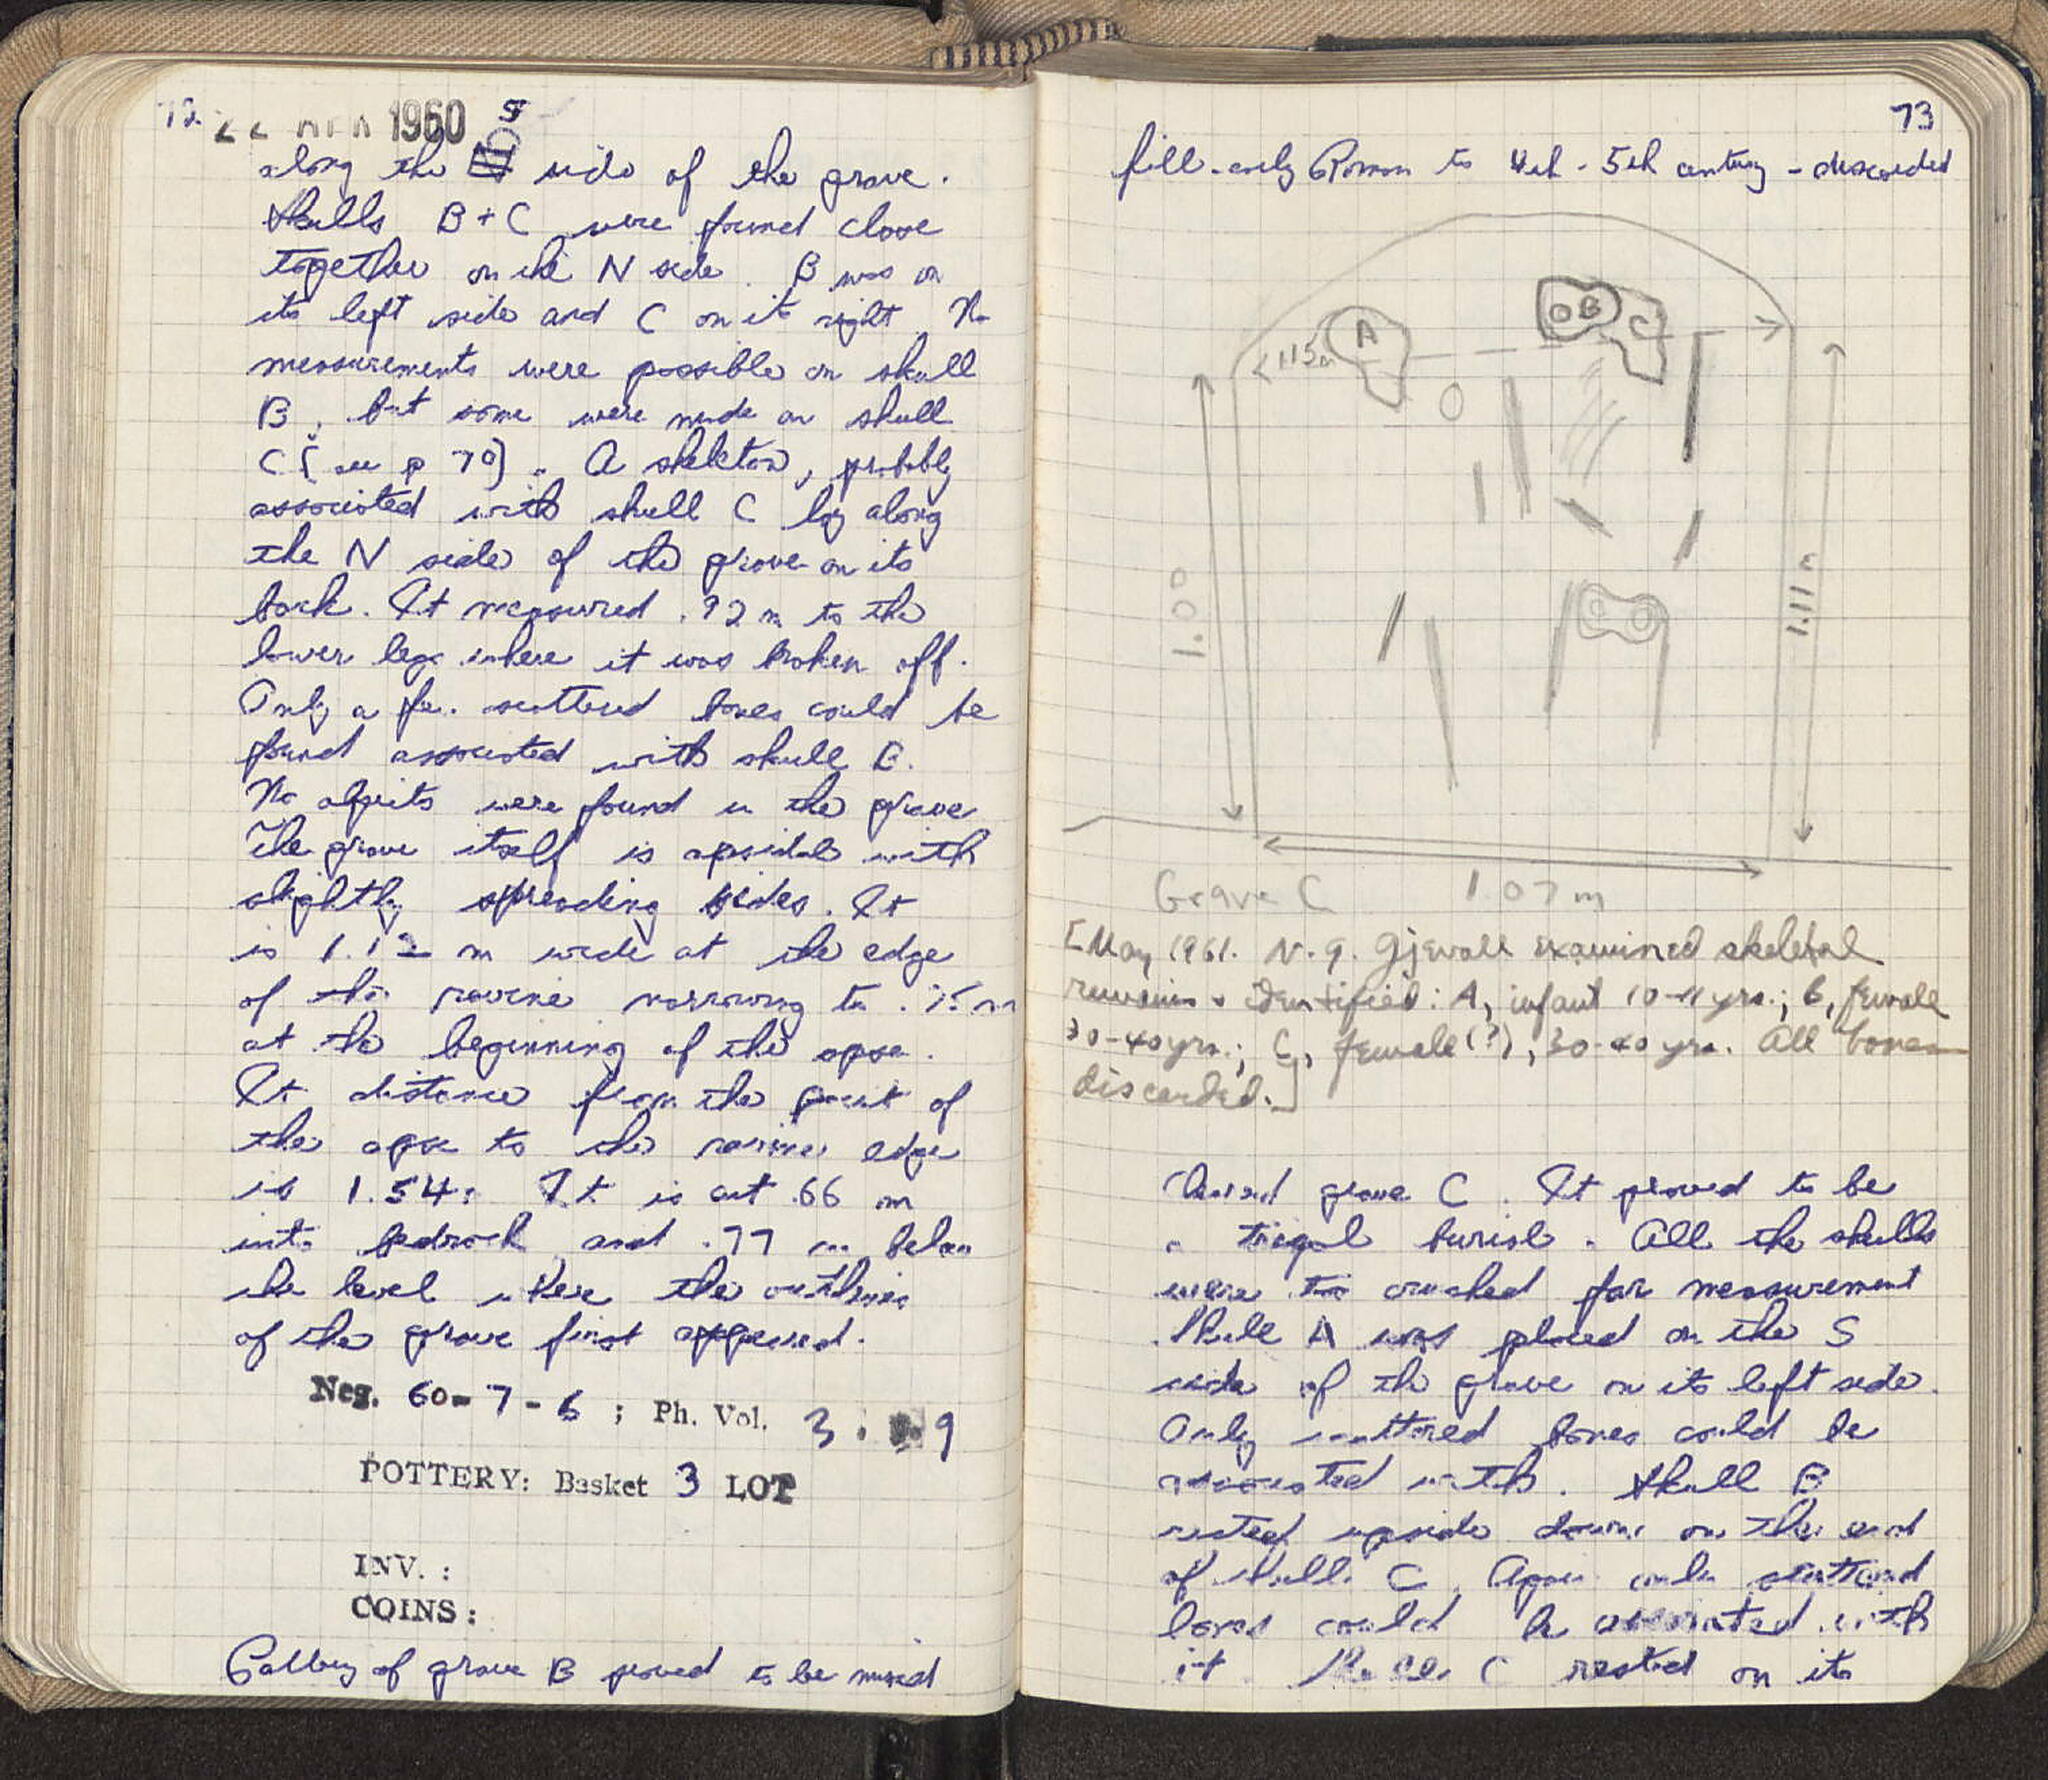 72
22 APR 1960
S
along the side of the grave.
Skulls B + C were found close
together on the N side. B was on
its left side and C on its right. No
measurements were possible on skull
B, but some were made on skull
C [see p 70]. A skeleton, probably
associated with skull C lay along
the N side of the grave on its
back. It measured .92 m to the
lower legs where it was broken off.
Only a few scattered bones could be
found associated with skull B.
No objects were found in the grave
The grave itself is apsidal with
slightly spreading sides. It
is 1.12 m wide at the edge
of the ravine narrowing to m
at the beginning of the apse.
It distance from the point of
the apse to the ravine edge
is 1.54. It is cut .66 m
into bedrock and .77 m below
the level where the outlines
of the grave first appeared.
Neg. 60-7-6; Ph. Vol. 3. 9
POTTERY: Basket 3 LOT
INV.:
COINS:
Pottery of grave B proved to be mixed
73
fill - early Roman to 4th - 5th century - discarded
A
B
C
1.15m
1.00
1.11 m
1.07 m
Grave C
[May 1961. N.-G. Gejvall examined skeletal
remains & identified: A, infant 10-11 yrs.; B, female
30-40 yrs.; C, female (?), 30-40 yrs. All bones
discarded.]
Cleaned grave C. It proved to be
a triple burial. All the skulls
were too crushed for measurement
Skull A was placed on the S
side of the grave on its left side.
Only scattered bones could be
associated with. Skull B
rested upside down on the end
of skull C. Again only scattered
bones could be associated with
it. Skull C rested on its